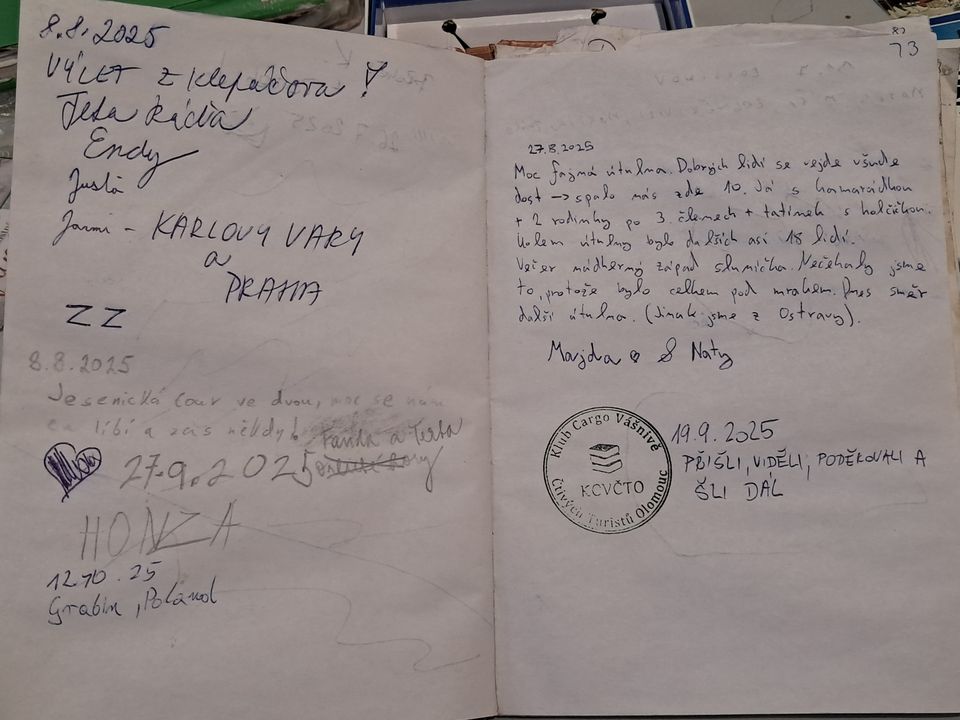 8.8.2025
VÝLET z Klepáčova!
Teta Káča
Endy
Justá
Jarmi - KARLOVY VARY
a
PRAHA
ZZ
8.8.2025
Jesenická tour ve dvou, moc se nám
tu líbí a zas někdy. Fanda a Terka
27.9.2025
HONZA
12.10.25
Grabin, Poland
83
73
27.8.2025
Moc fajná útulna. Dobrých lidí se vejde všude
dost -> spalo nás zde 10. Já s kamarádkou
+ 2 rodinky po 3. členech + tatínek s holčičkou.
Kolem útulny bylo dalších asi 18 lidí.
Večer nádherný západ sluníčka. Nečekaly jsme
to, protože bylo celkem pod mrakem. Dnes směr
další útulna. (Jinak jsme z Ostravy).
Majda & Naty
Klub Cargo Vášnivě
KCVČTO
Čtivých Turistů Olomouc
19.9.2025
PŘIŠLI, VIDĚLI, PODĚKOVALI A
ŠLI DÁL